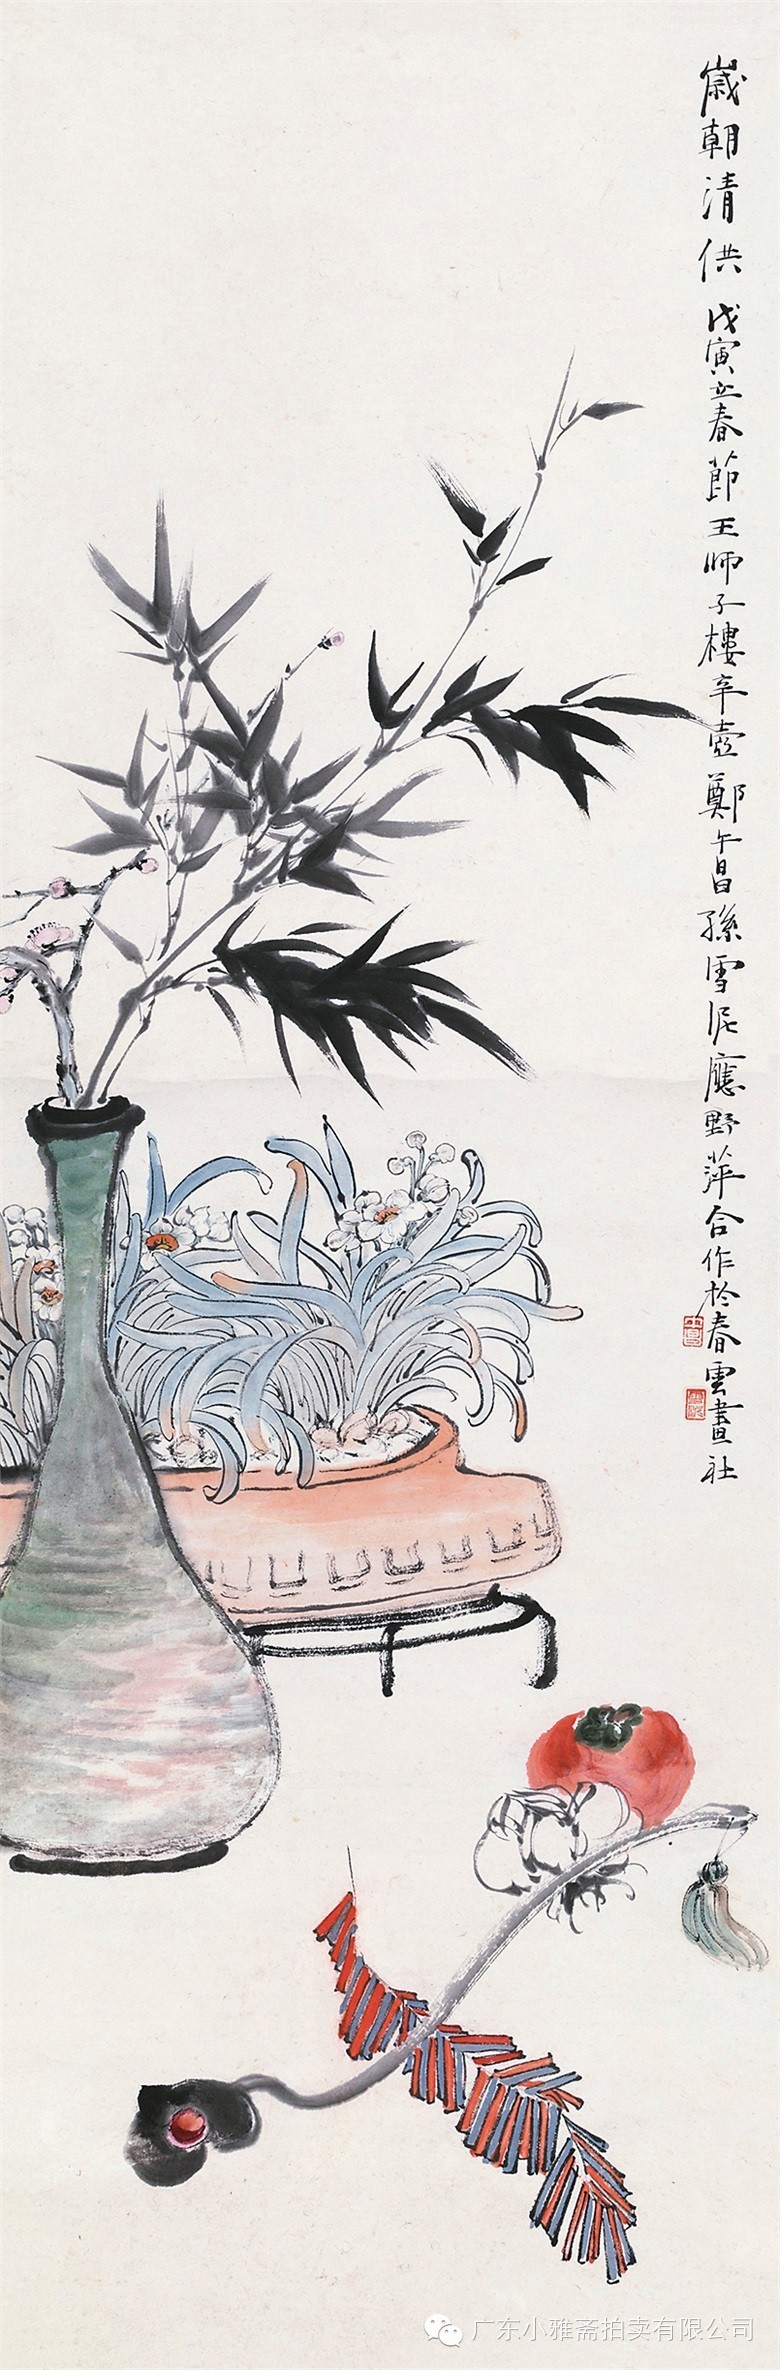 歲朝清供 戊寅立春節王师子樓辛壺鄭午昌孫雪泥應野萍合作於春雲畫社
广东小雅斋拍卖有限公司